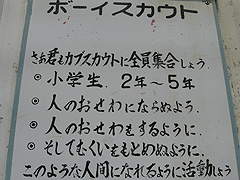 ボーイスカウト
さあ君もカブスカウトに全員集合しょう
◉ 小学生、2年〜5年
◉ 人のおせわにならぬよう、
◉ 人のおせわもするように、
◉ そしてむくいをもとめぬように、
このような人間になれるように活動しよう